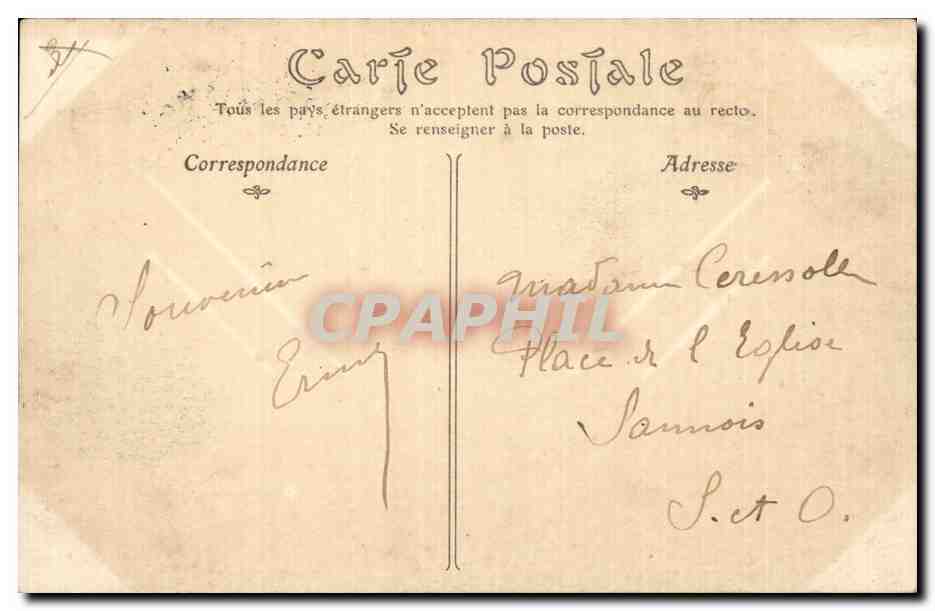 Carte Postale
Tous les pays étrangers n'acceptent pas la correspondance au recto.
Se renseigner à la poste.
Correspondance
Adresse
Souvenir
CPAPHIL
Madame
Place de l Eglise
Sannois
S. et O.